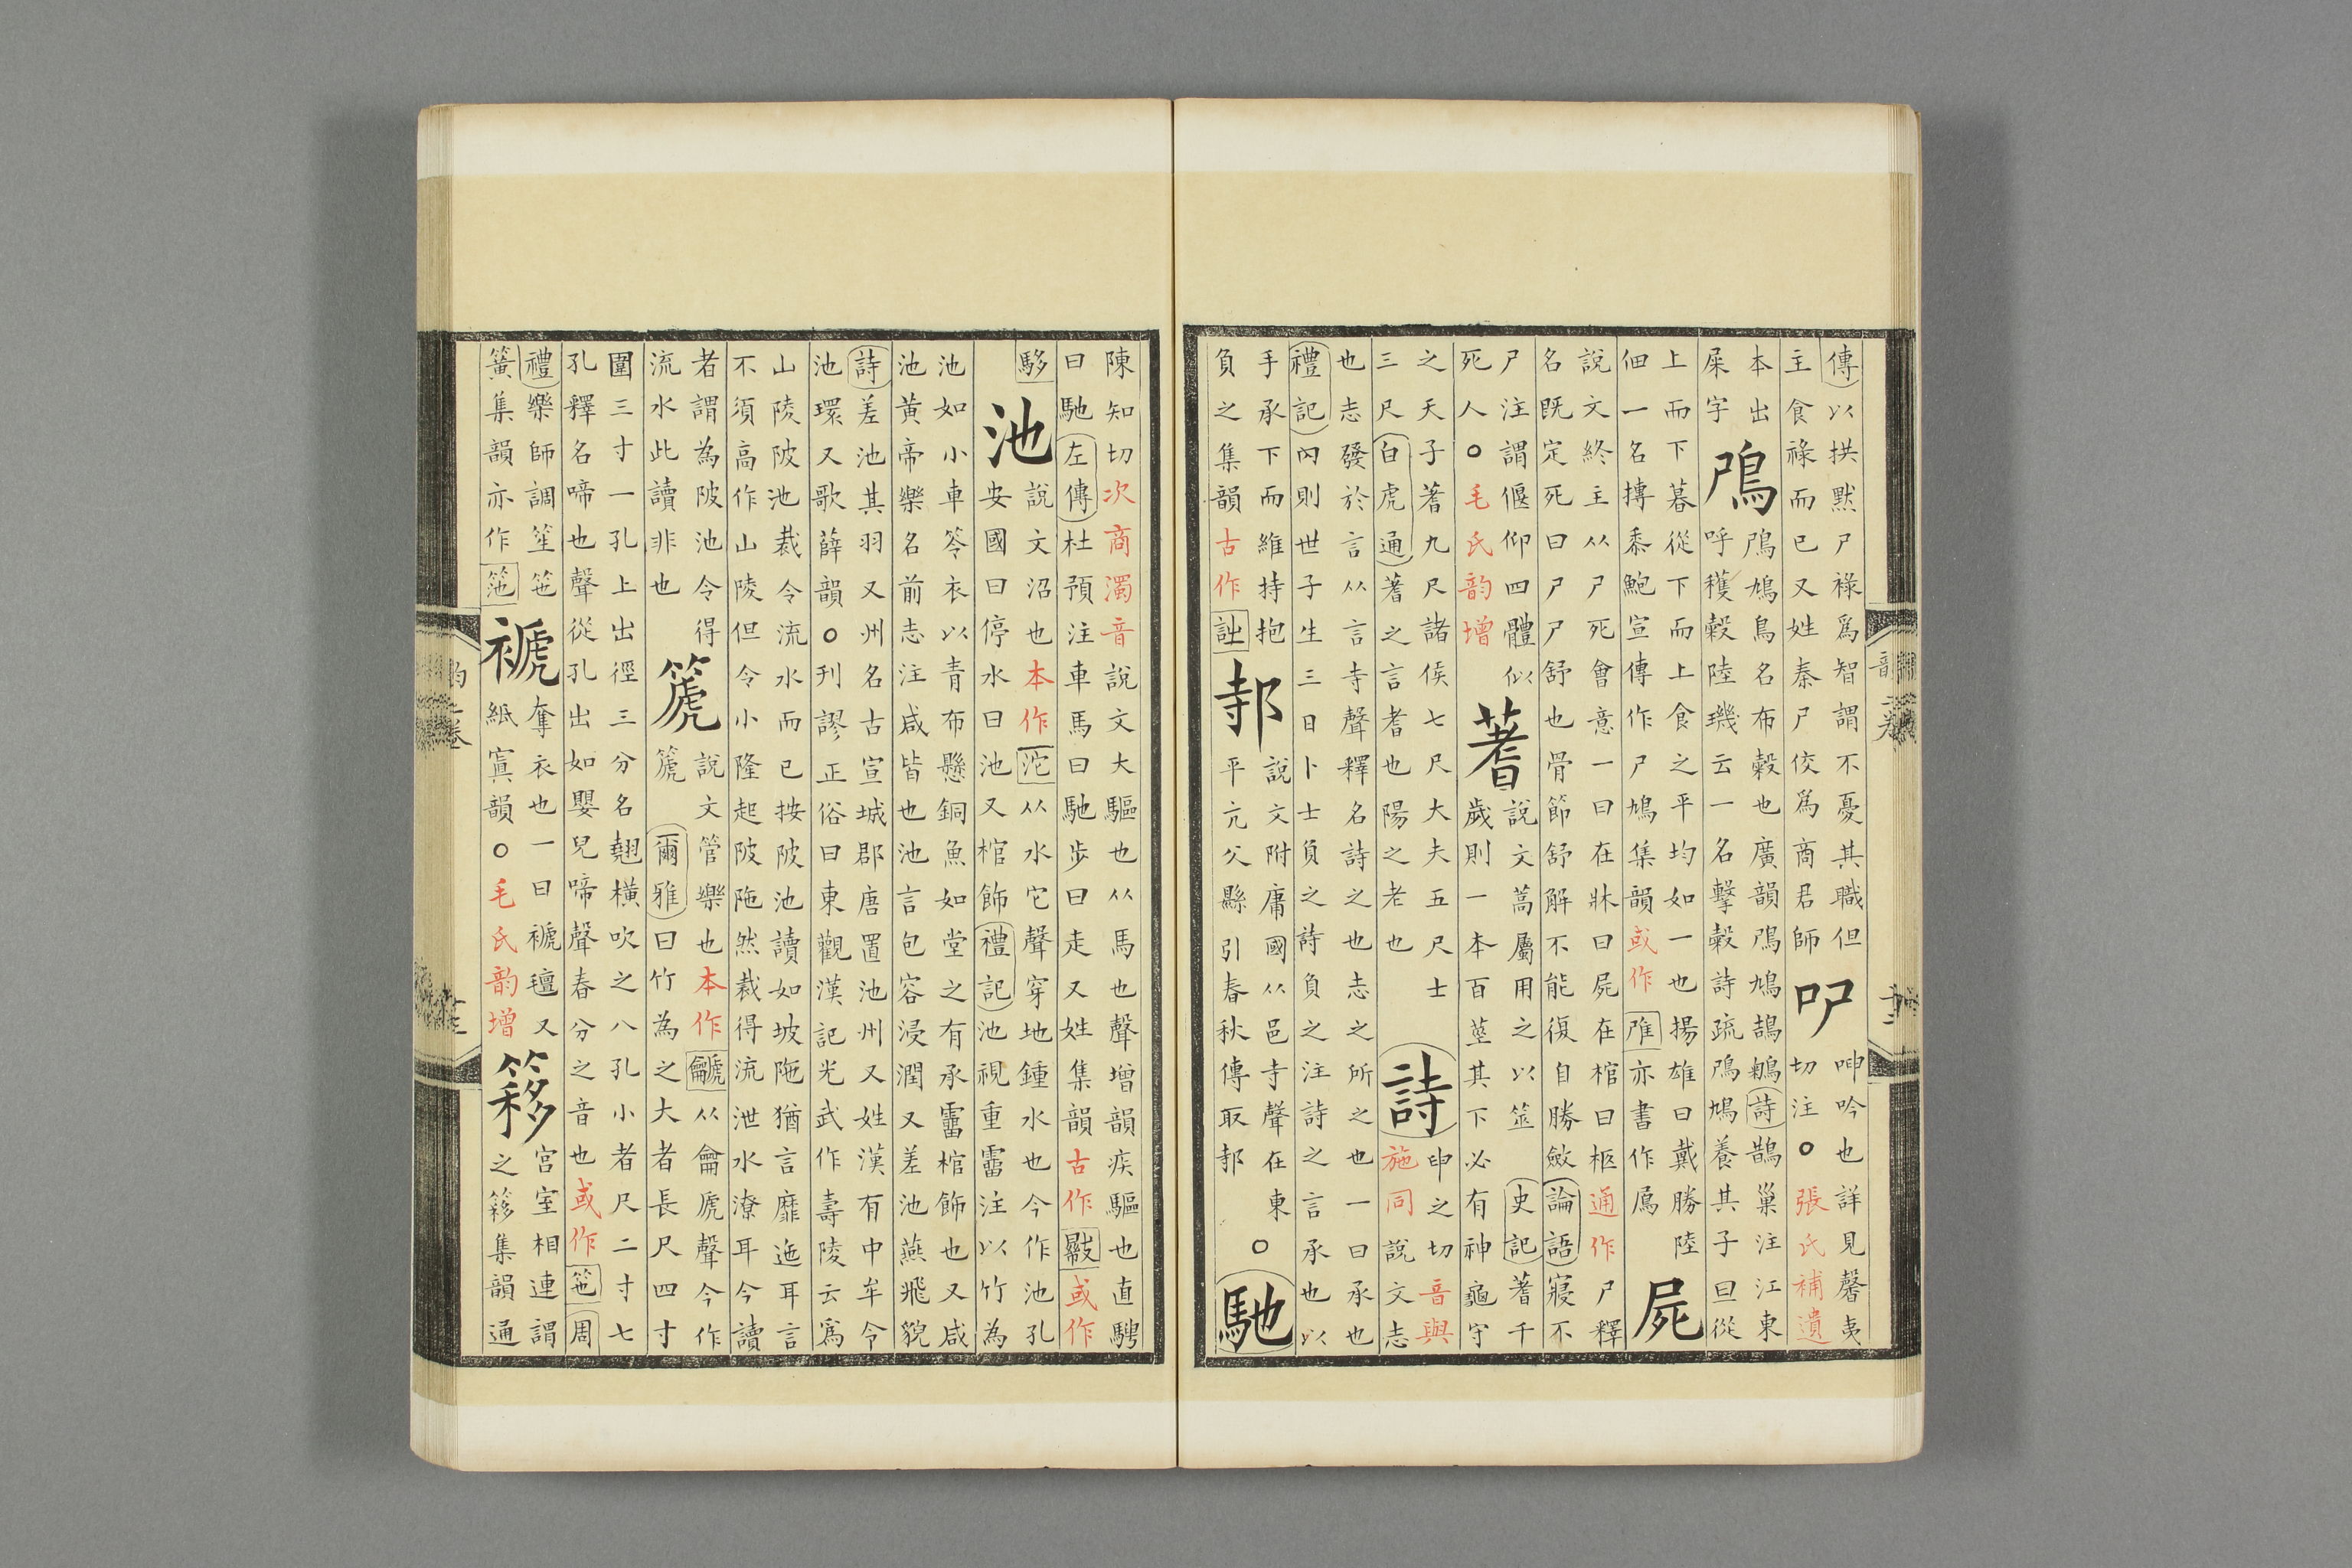 傳以拱默尸祿爲智謂不憂其職但主食祿而已又姓秦尸佼爲商君師㕧呻吟也詳見馨夷切注○張氏補遺
本出屎字鳲鳲鳩鳥名布穀也廣韻鳲鳩鴶鵴詩鵲巢注江東呼穫穀陸璣云一名擊穀詩疏鳲鳩養其子曰從
上而下暮從下而上食之平均如一也揚雄曰戴勝陸佃一名摶黍鮑宣傳作尸鳩集韻或作亦書作鳲屍
說文終主从尸死會意一曰在牀曰屍在棺曰柩通作尸釋名既定死曰尸尸舒也骨節舒解不能復自勝斂論語寢不
尸注謂偃仰四體似死人○毛氏韵增蓍說文蒿屬用之以筮史記蓍千歲則一本百莖其下必有神龜守
之天子蓍九尺諸侯七尺大夫五尺士三尺白虎通蓍之言耆也陽之老也詩申之切音與施同說文志
也志發於言从言寺聲釋名詩之也志之所之也一曰承也禮記內則世子生三日卜士負之詩負之注詩之言承也以
手承下而維持抱負之集韻古作𧥳邿說文附庸國从邑寺聲在東平亢父縣引春秋傳取邿○馳
陳知切次商濁音說文大驅也从馬也聲增韻疾驅也直騁曰馳左傳杜預注車馬曰馳步曰走又姓集韻古作或作
池說文沼也本作沱从水它聲穿地鍾水也今作池孔安國曰停水曰池又棺飾禮記池視重霤注以竹為
池如小車笭衣以青布懸銅魚如堂之有承霤棺飾也又咸池黄帝樂名前志注咸皆也池言包容浸潤又差池燕飛貌
詩差池其羽又州名古宣城郡唐置池州又姓漢有中牟令池環又歌薛韻○刊謬正俗曰東觀漢記光武作壽陵云爲
山陵陂池裁令流水而已按陂池讀如坡陁猶言靡迤耳言不須高作山陵但令小隆起陂陁然裁得流泄水潦耳今讀
者謂為陂池令得流水此讀非也篪說文管樂也本作䶵从龠虒聲今作篪爾雅曰竹為之大者長尺四寸
圍三寸一孔上出徑三分名翹橫吹之八孔小者尺二寸七孔釋名啼也聲從孔出如嬰兒啼聲春分之音也或作竾周
禮樂師調笙竾簧集韻亦作筂褫奪衣也一曰褫氊又紙寘韻○毛氏韵增簃宮室相連謂之簃集韻通